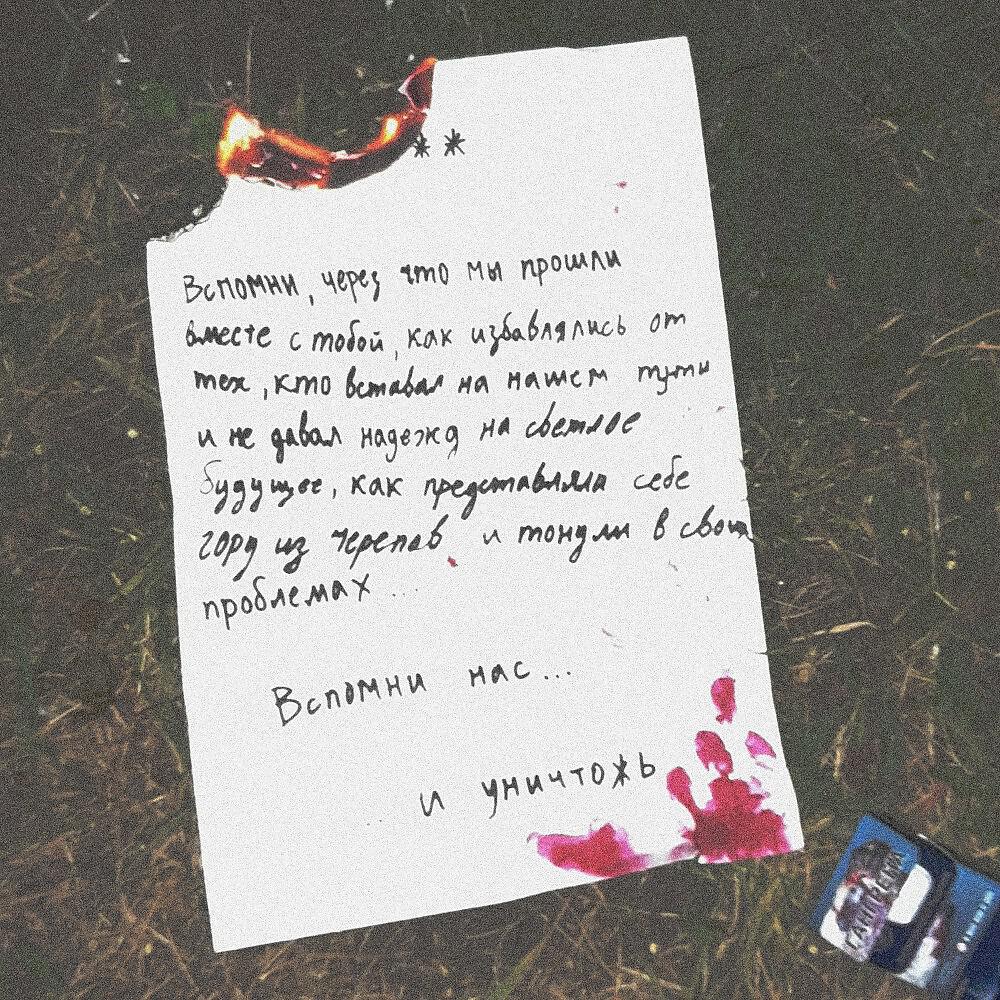 * *
Вспомни, через что мы прошли
вместе с тобой, как избавлялись от
тех, кто вставал на нашем пути
и не давал надежд на светлое
будущее, как представляли себе
гору из черепов и тонули в своих
проблемах...
Вспомни нас...
и уничтожь
ГАНГРЕНА